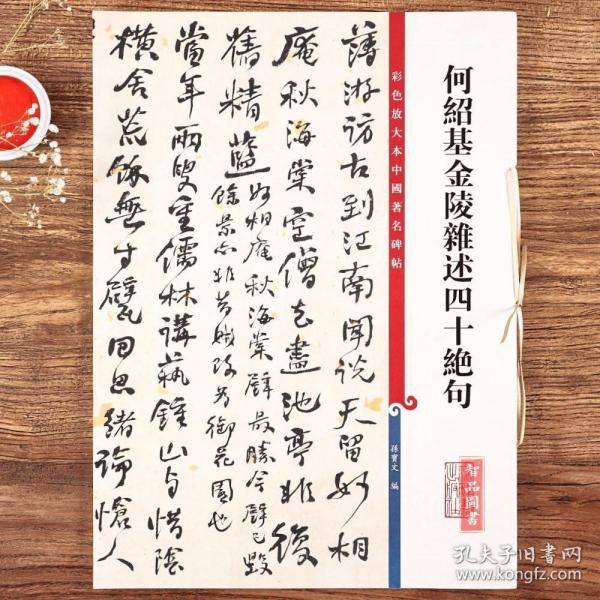 何紹基金陵雜述四十絶句
彩色放大本中國著名碑帖
孫寶文 編
智品圖書
薄游訪古到江南聞說天留妙相
庵秋海棠空僧去盡池亭非復
舊精藍妙相庵秋海棠群最勝今群已毁
餘景亦非昔賊改為御花園也
當年兩叟重儒林講藝鍾山与惜陰
橫舍荒餘無寸甓回思緒論愴人
孔夫子旧書网
www.kongfz.com